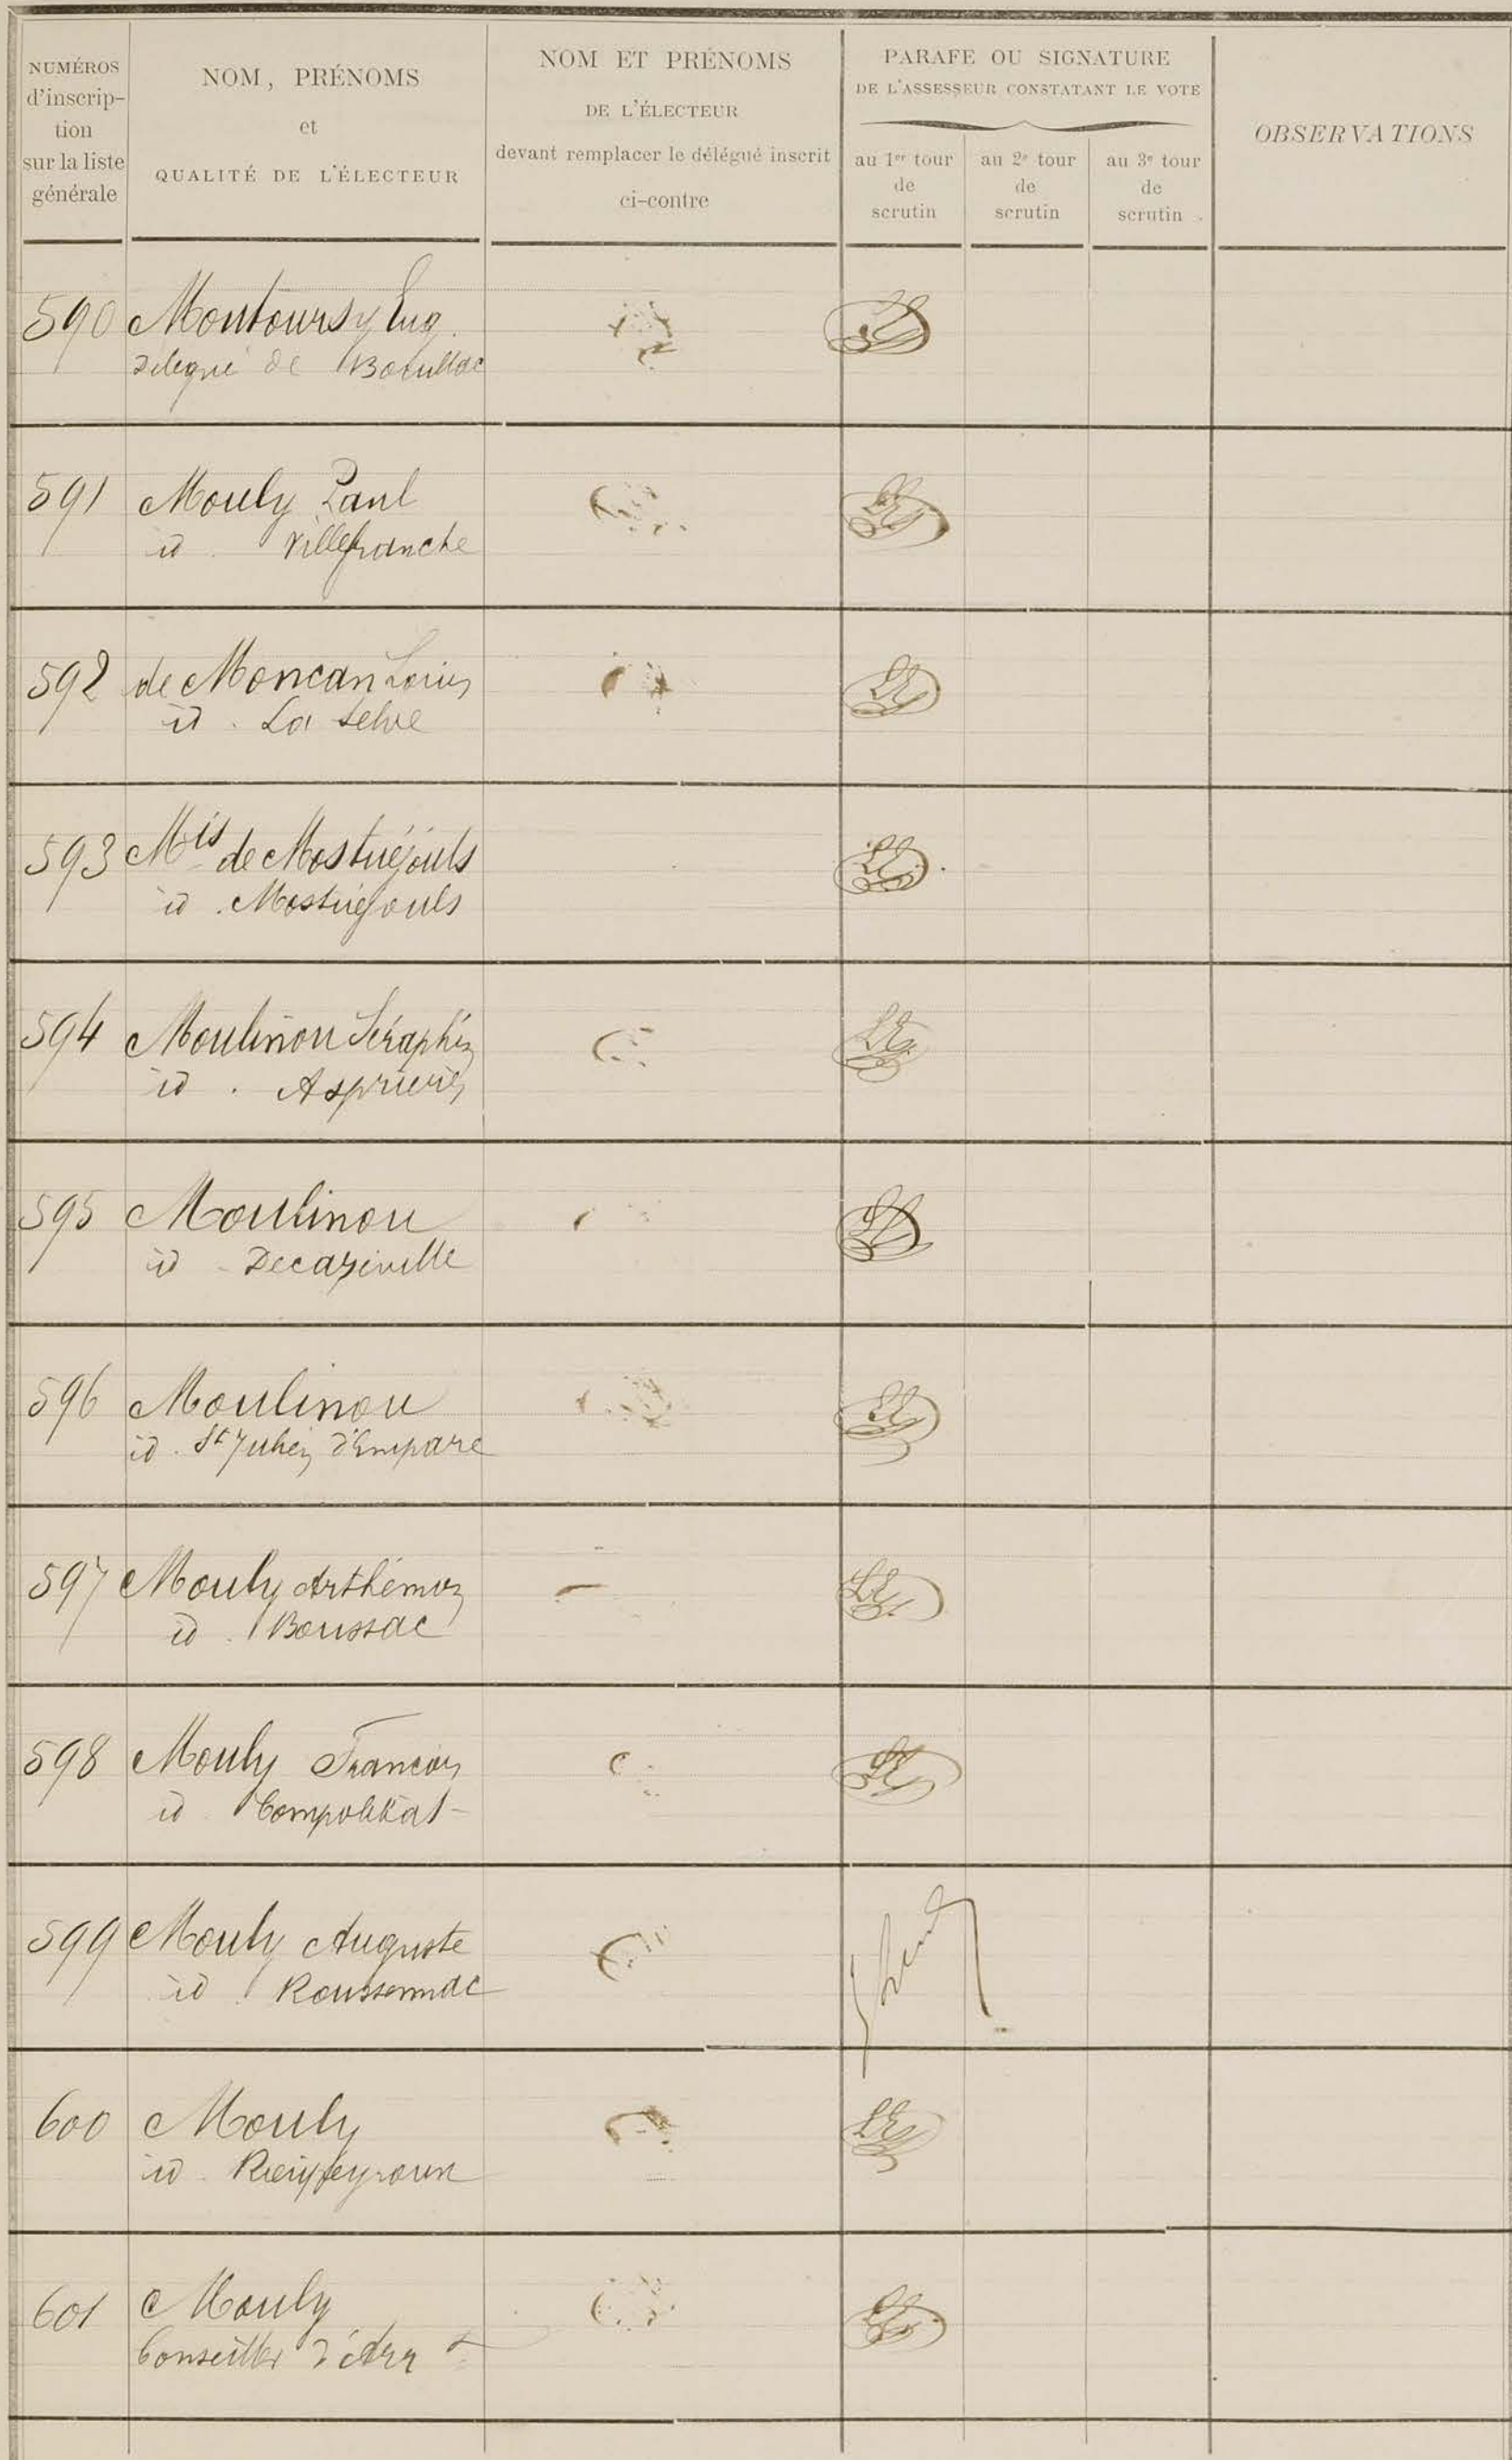 NUMÉROS
d'inscrip-
tion
sur la liste
générale
NOM, PRÉNOMS
et
QUALITÉ DE L'ÉLECTEUR
NOM ET PRÉNOMS
DE L'ÉLECTEUR
devant remplacer le délégué inscrit
ci-contre
PARAFE OU SIGNATURE
DE L'ASSESSEUR CONSTATANT LE VOTE
au 1er tour
de
scrutin
au 2e tour
de
scrutin
au 3e tour
de
scrutin
OBSERVATIONS
590 Montoursy Eug.
Délégué de Bouillac
591 Mouly Paul
id. Villefranche
592 de Moncan Louis
id. La Selve
593 Mis de Mostuéjouls
id. Mostuéjouls
594 Moulinou Séraphin
id. Asprières
595 Moulinou
id Decazeville
596 Moulinou
id. St Julien d'Empare
597 Mouly Arthémon
id. Boussac
598 Mouly François
id. Compolibat
599 Mouly Auguste
id Roussennac
600 Mouly
id. Rieupeyroux
601 Mouly
Conseiller d'Arrt